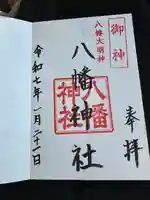 奉拝
御神
八幡大明神
八幡神社
八幡
神社
令和七年一月二十一日